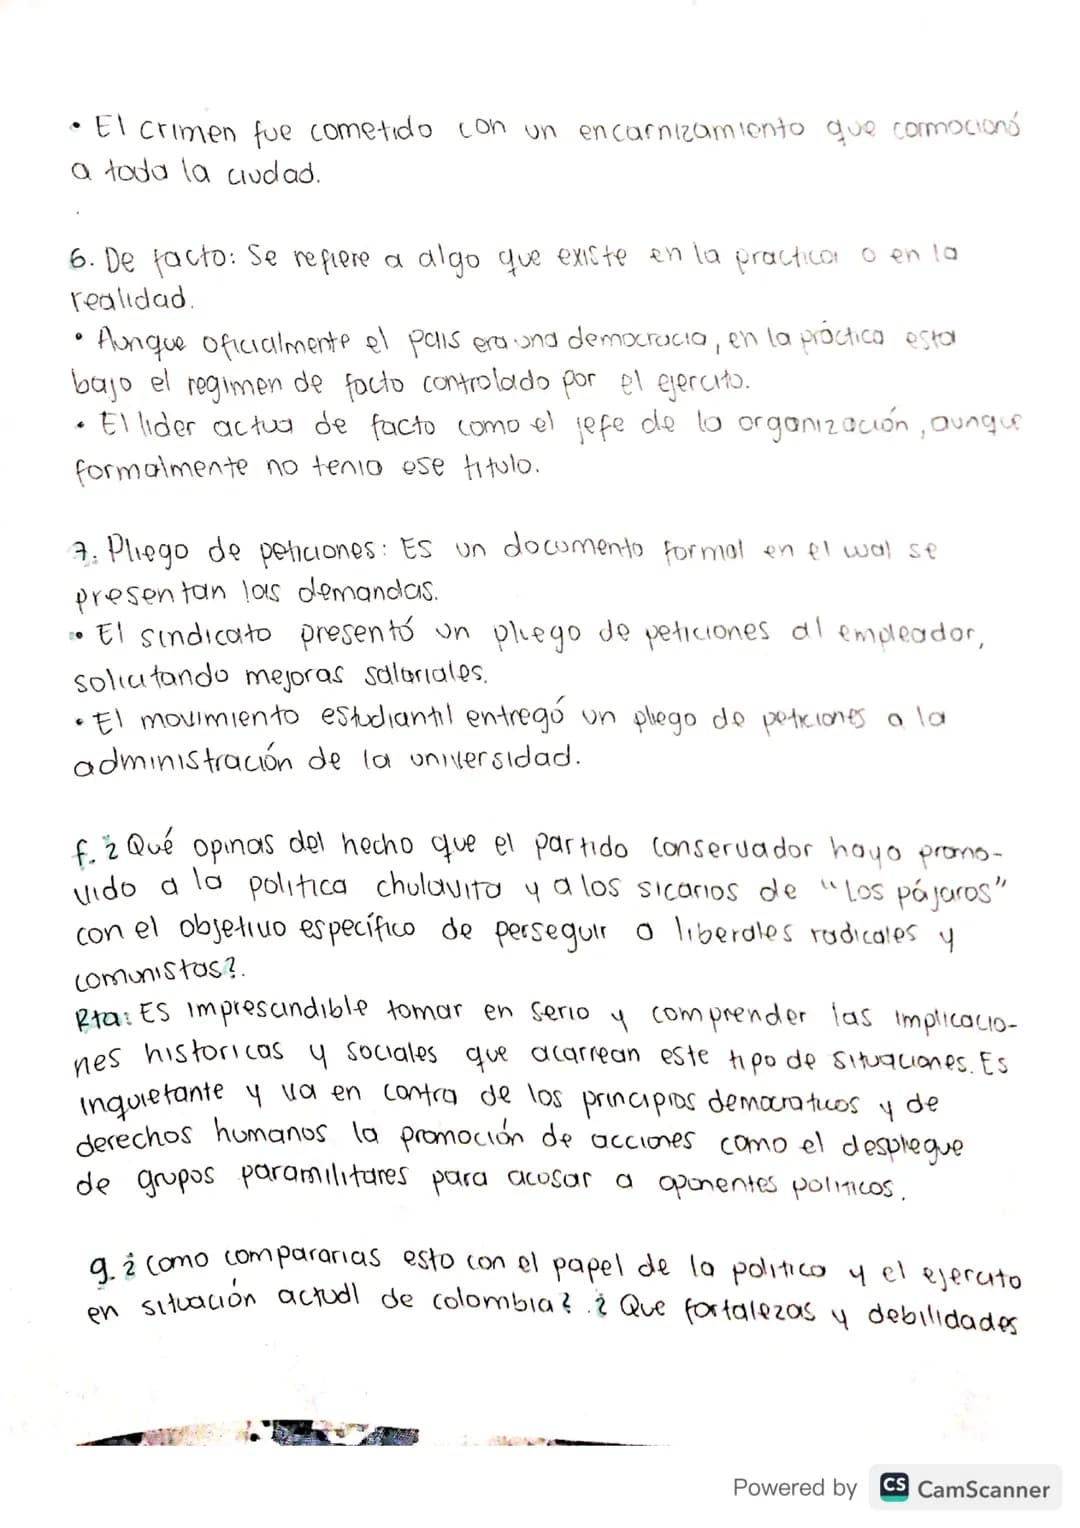 • El crimen fue cometido con un encarnizamiento que conmocionó
a toda la ciudad.
6. De facto: Se refiere a algo que existe en la practica o en la
realidad.
• Aunque oficialmente el pais era una democracia, en la práctica esta
bajo el regimen de facto controlado por el ejercito.
• El lider actua de facto como el jefe de la organización, aunque
formalmente no tenia ese titulo.
7. Pliego de peticiones: Es un documento formal en el cual se
presentan las demandas.
• El sindicato presentó un pliego de peticiones al empleador,
solicitando mejoras salariales.
• El movimiento estudiantil entregó un pliego de peticiones a la
administración de la universidad.
f. ¿Qué opinas del hecho que el partido conservador haya promo-
vido a la politica chulavita y a los sicarios de "Los pájaros"
con el objetivo específico de perseguir a liberales radicales y
comunistas?.
Rta: Es impresandible tomar en serio y comprender las implicacio-
nes historicas y sociales que acarrean este tipo de situaciones. Es
inquietante y va en contra de los principios democraticos y de
derechos humanos la promoción de acciones como el despliegue
de grupos paramilitares para acosar a oponentes politicos.
g. ¿Como compararias esto con el papel de la politica y el ejercito
en situación actual de colombia? .¿Que fortalezas y debilidades
Powered by CS CamScanner